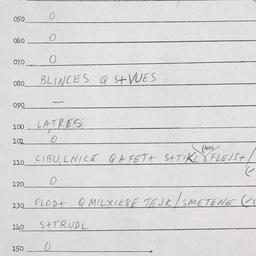 050 0
060 0
070 0
080 BLINCES Q S+VUES
090 —
100 LATKES
101 0
110 CIBU,LNICE Q A FET+ S+TIKL FLEJS+/
120 0
130 FLOD+ Q MILXIKSE TEJK/SMETENE
140 S+TRUDL
150 0